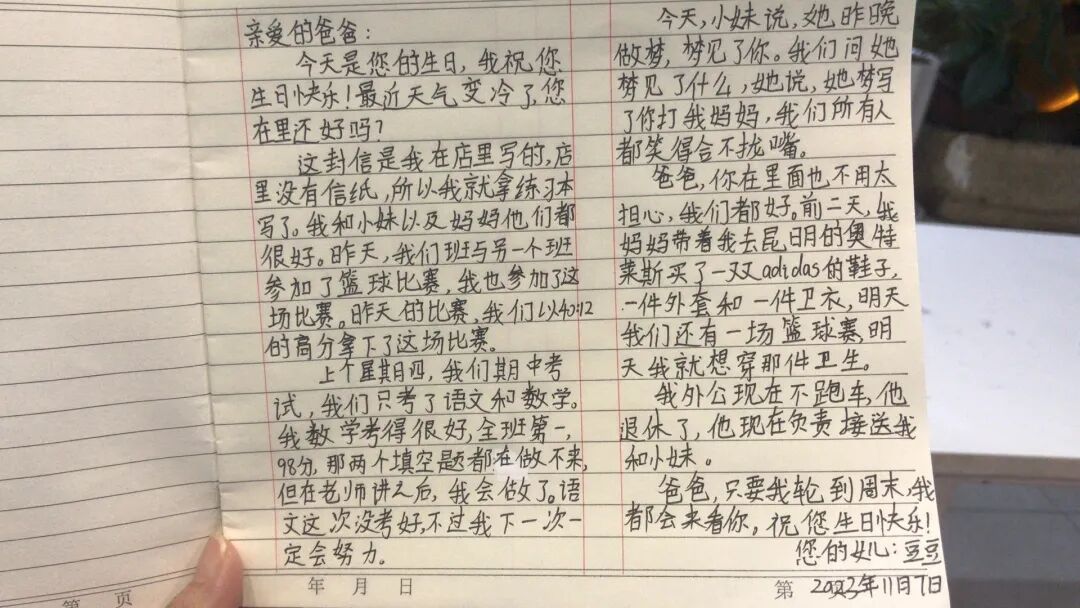 亲爱的爸爸：
今天是您的生日，我祝您
生日快乐！最近天气变冷了，您
在里还好吗？
这封信是我在店里写的，店
里没有信纸，所以我就拿练习本
写了。我和小妹以及妈妈他们都
很好。昨天，我们班与另一个班
参加了篮球比赛，我也参加了这
场比赛。昨天的比赛，我们以40:12
的高分拿下了这场比赛。
上个星期四，我们期中考
试，我们只考了语文和数学。
我数学考得很好，全班第一，
98分，那两个填空题都在做不来，
但在老师讲之后，我会做了。语
文这次没考好，不过我下一次一
定会努力。
年 月 日
第 页
今天，小妹说，她昨晚
做梦，梦见了你。我们问她
梦见了什么，她说，她梦写
了你打我妈妈，我们所有人
都笑得合不拢嘴。
爸爸，你在里面也不用太
担心，我们都好。前二天，我
妈妈带着我去昆明的奥特
莱斯买了一双adidas的鞋子，
一件外套和一件卫衣，明天
我们还有一场篮球赛，明
天我就想穿那件卫生。
我外公现在不跑车，他
退休了，他现在负责接送我
和小妹。
爸爸，只要我轮到周末，我
都会来看你。祝您生日快乐！
您的女儿：豆豆
第 2023年11月7日